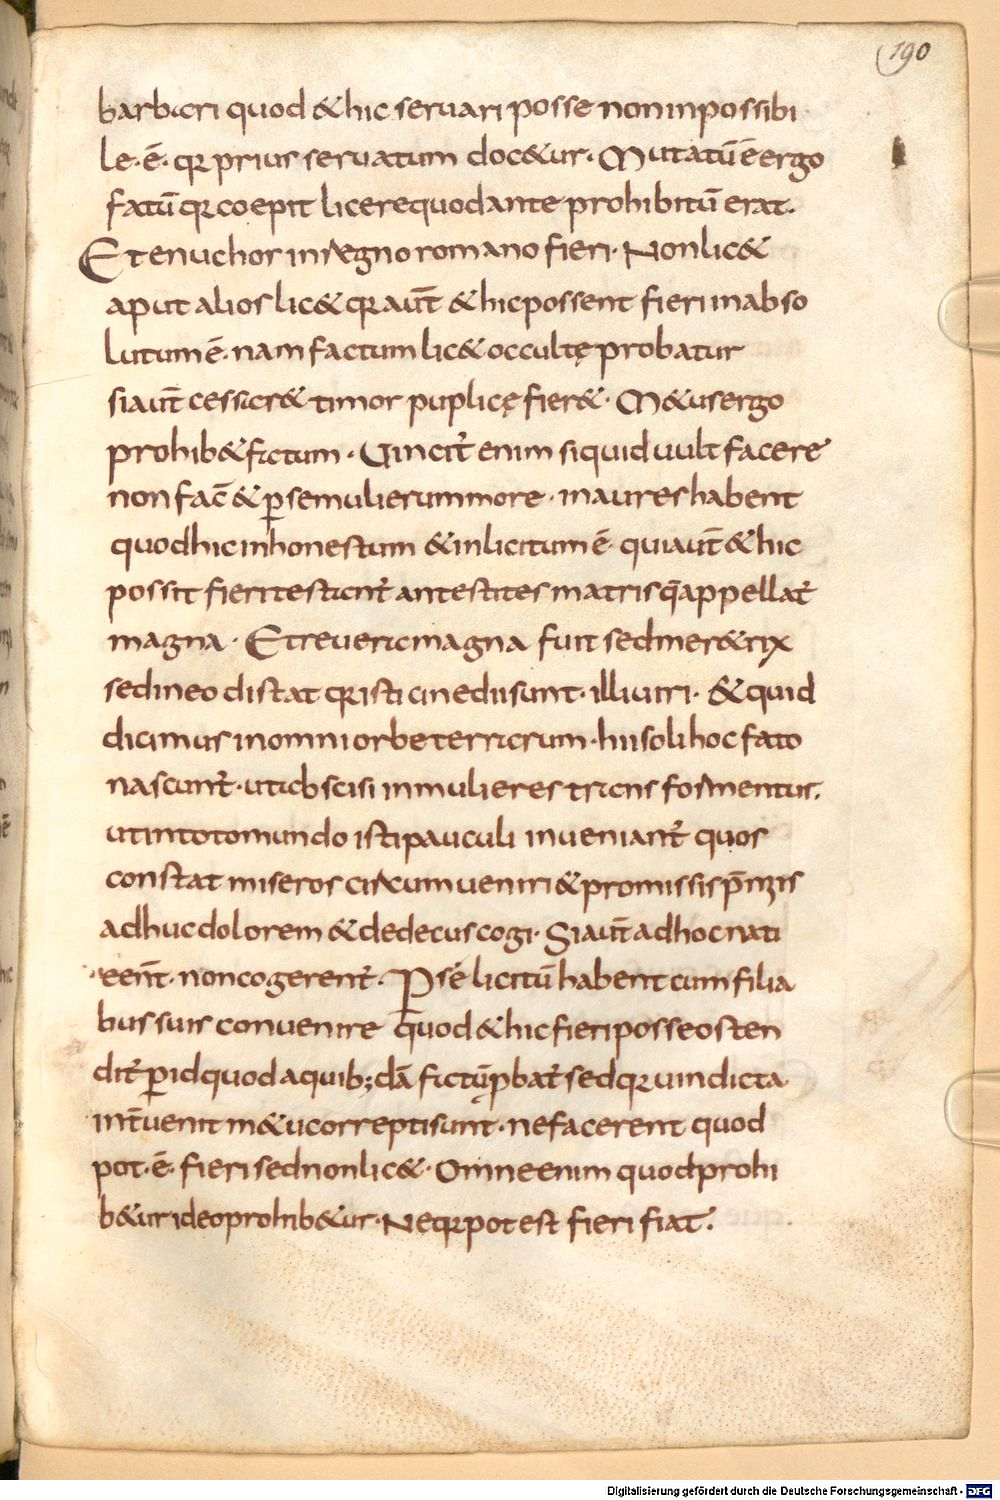 190
barbari quod & hic seruari posse non inpossibi
le · ē · qꝛ prius seruatum doc&ur · Mutatū ē ergo
fatū qꝛ coepit licere quod ante prohibitū erat ·
Et enuchos in regno romano fieri · Non lic&
aput alios lic& qꝛ aut̄ & hic possent fieri in abso
lutum ē · nam factum lic& occultę probatur
si aut̄ cessar& timor puplicę fier& · M&us ergo
prohib& factum · Vincit̄ enim si quid uult facere
non fac̄ & ꝑse mulierum more · in aures habent
quod hic inhonestum & inlicitum ē · quia aut̄ & hic
possit fieri testant̄ antestites matris q̄ appellat̄
magna · Et reuera magna fuit sed mer&rix
sed in eo distat qꝛ isti cinedi sunt · illi uiri · & quid
dicimus in omni orbe terrarum · hii soli hoc fato
nascunt̄ · ut abscisi in mulieres transformentur ·
ut in toto mundo isti pauculi inueniant̄ quos
constat miseros circumueniri & promissis p̄miis
ad huc dolorem & dedecus cogi · Si aut̄ ad hoc nati
eēnt · non cogerent̄ · Perse licitū habent cum filia
bus suis conuenire quod & hic fieri posse osten
dit̄ ꝑ id quod a quib; dā factū ꝓbat̄ sed qꝛ uindicta
int̄uenit m&u correpti sunt · ne facerent quod
pot · ē · fieri sed non lic& · Omne enim quod prohi
b&ur ideo prohib&ur · Ne qꝛ potest fieri fiat ·
Digitalisierung gefördert durch die Deutsche Forschungsgemeinschaft - DFG